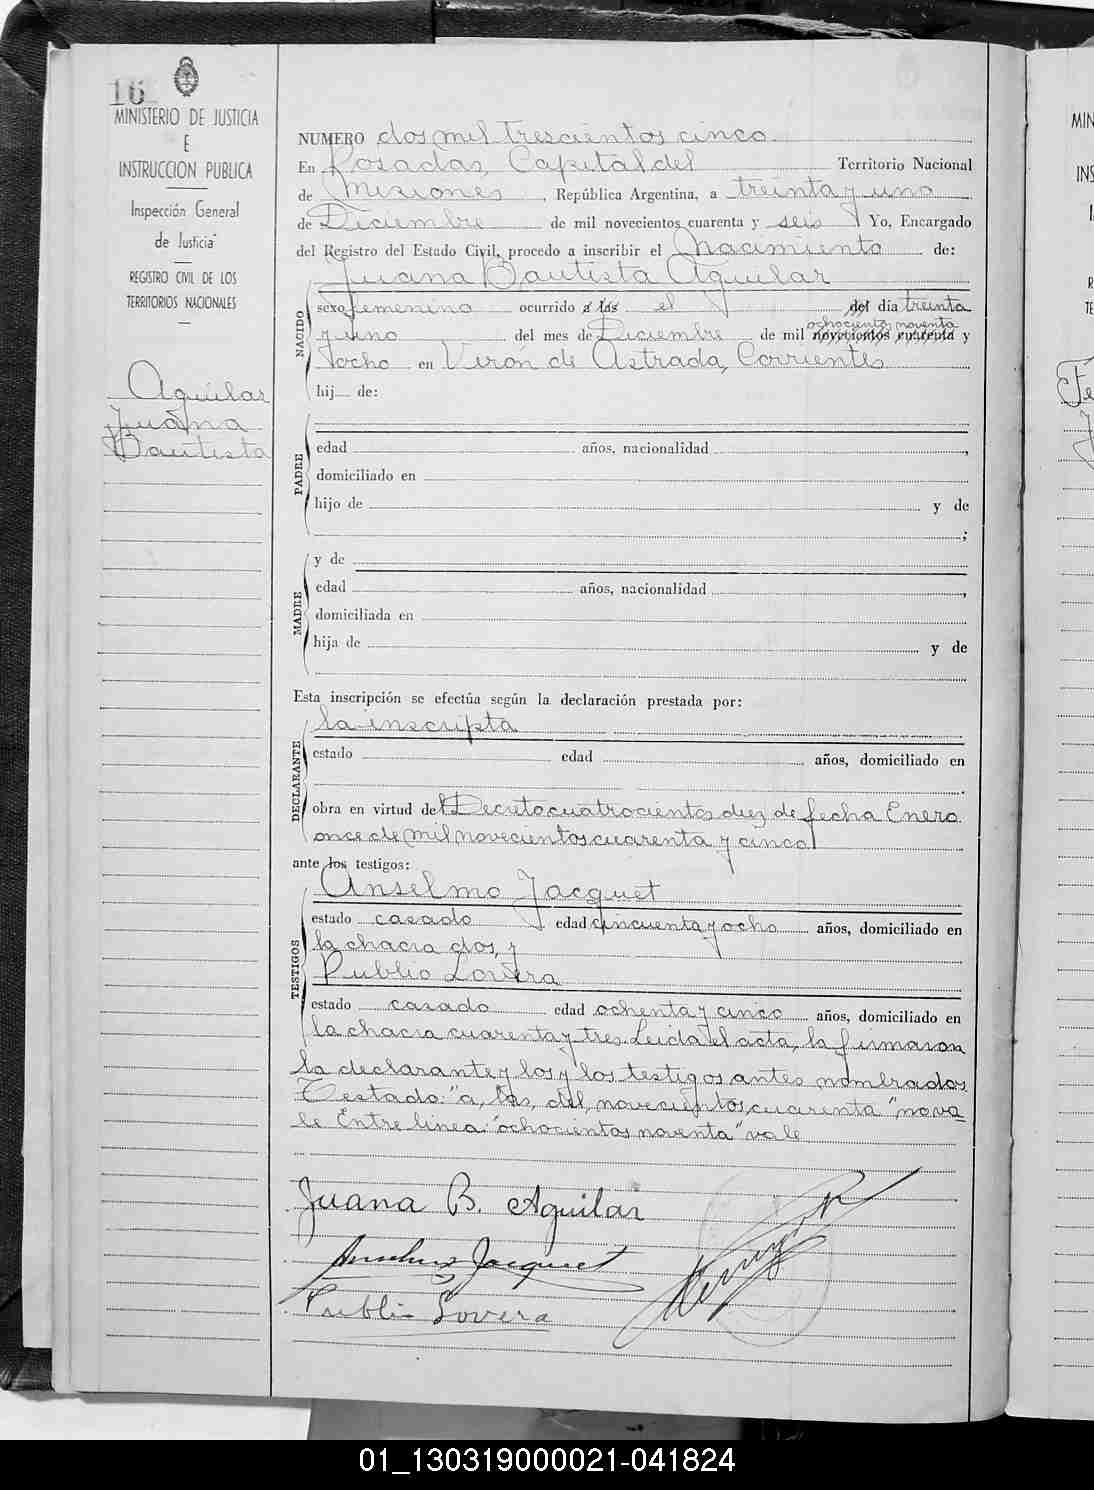 16
MINISTERIO DE JUSTICIA
E
INSTRUCCION PUBLICA
Inspección General
de Justicia
REGISTRO CIVIL DE LOS
TERRITORIOS NACIONALES
Aguilar
Juana
Bautista
NUMERO dos mil trescientos cinco
En Posadas, Capital del Territorio Nacional
de Misiones, República Argentina, a treinta y uno
de Diciembre de mil novecientos cuarenta y seis Yo, Encargado
del Registro del Estado Civil, procedo a inscribir el Nacimiento de:
Juana Bautista Aguilar
NACIDO
sexo femenino ocurrido a las el del día treinta
y uno del mes de Diciembre de mil novecientos cuarenta y
ochocientos noventa
ocho en Verón de Astrada, Corrientes
hij de:
PADRE
edad años, nacionalidad ,
domiciliado en
hijo de y de
;
MADRE
y de
edad años, nacionalidad ,
domiciliada en
hija de y de
Esta inscripción se efectúa según la declaración prestada por:
DECLARANTE
la inscripta
estado edad años, domiciliado en
.
obra en virtud del Decreto cuatrocientos diez de fecha Enero
once de mil novecientos cuarenta y cinco
ante los testigos:
TESTIGOS
Anselmo Jacquet
estado casado edad cincuenta y ocho años, domiciliado en
la chacra dos, y
Publio Lovera
estado casado edad ochenta y cinco años, domiciliado en
la chacra cuarenta y tres. Leida el acta, la firmaron
la declarante y los y los testigos antes nombrados
Testado: "a, las, del, novecientos cuarenta" no va
le Entre linea: "ochocientos noventa" vale
Juana B. Aguilar
Anselmo Jacquet
Publio Lovera
MIN
INS
Fe
01_130319000021-041824